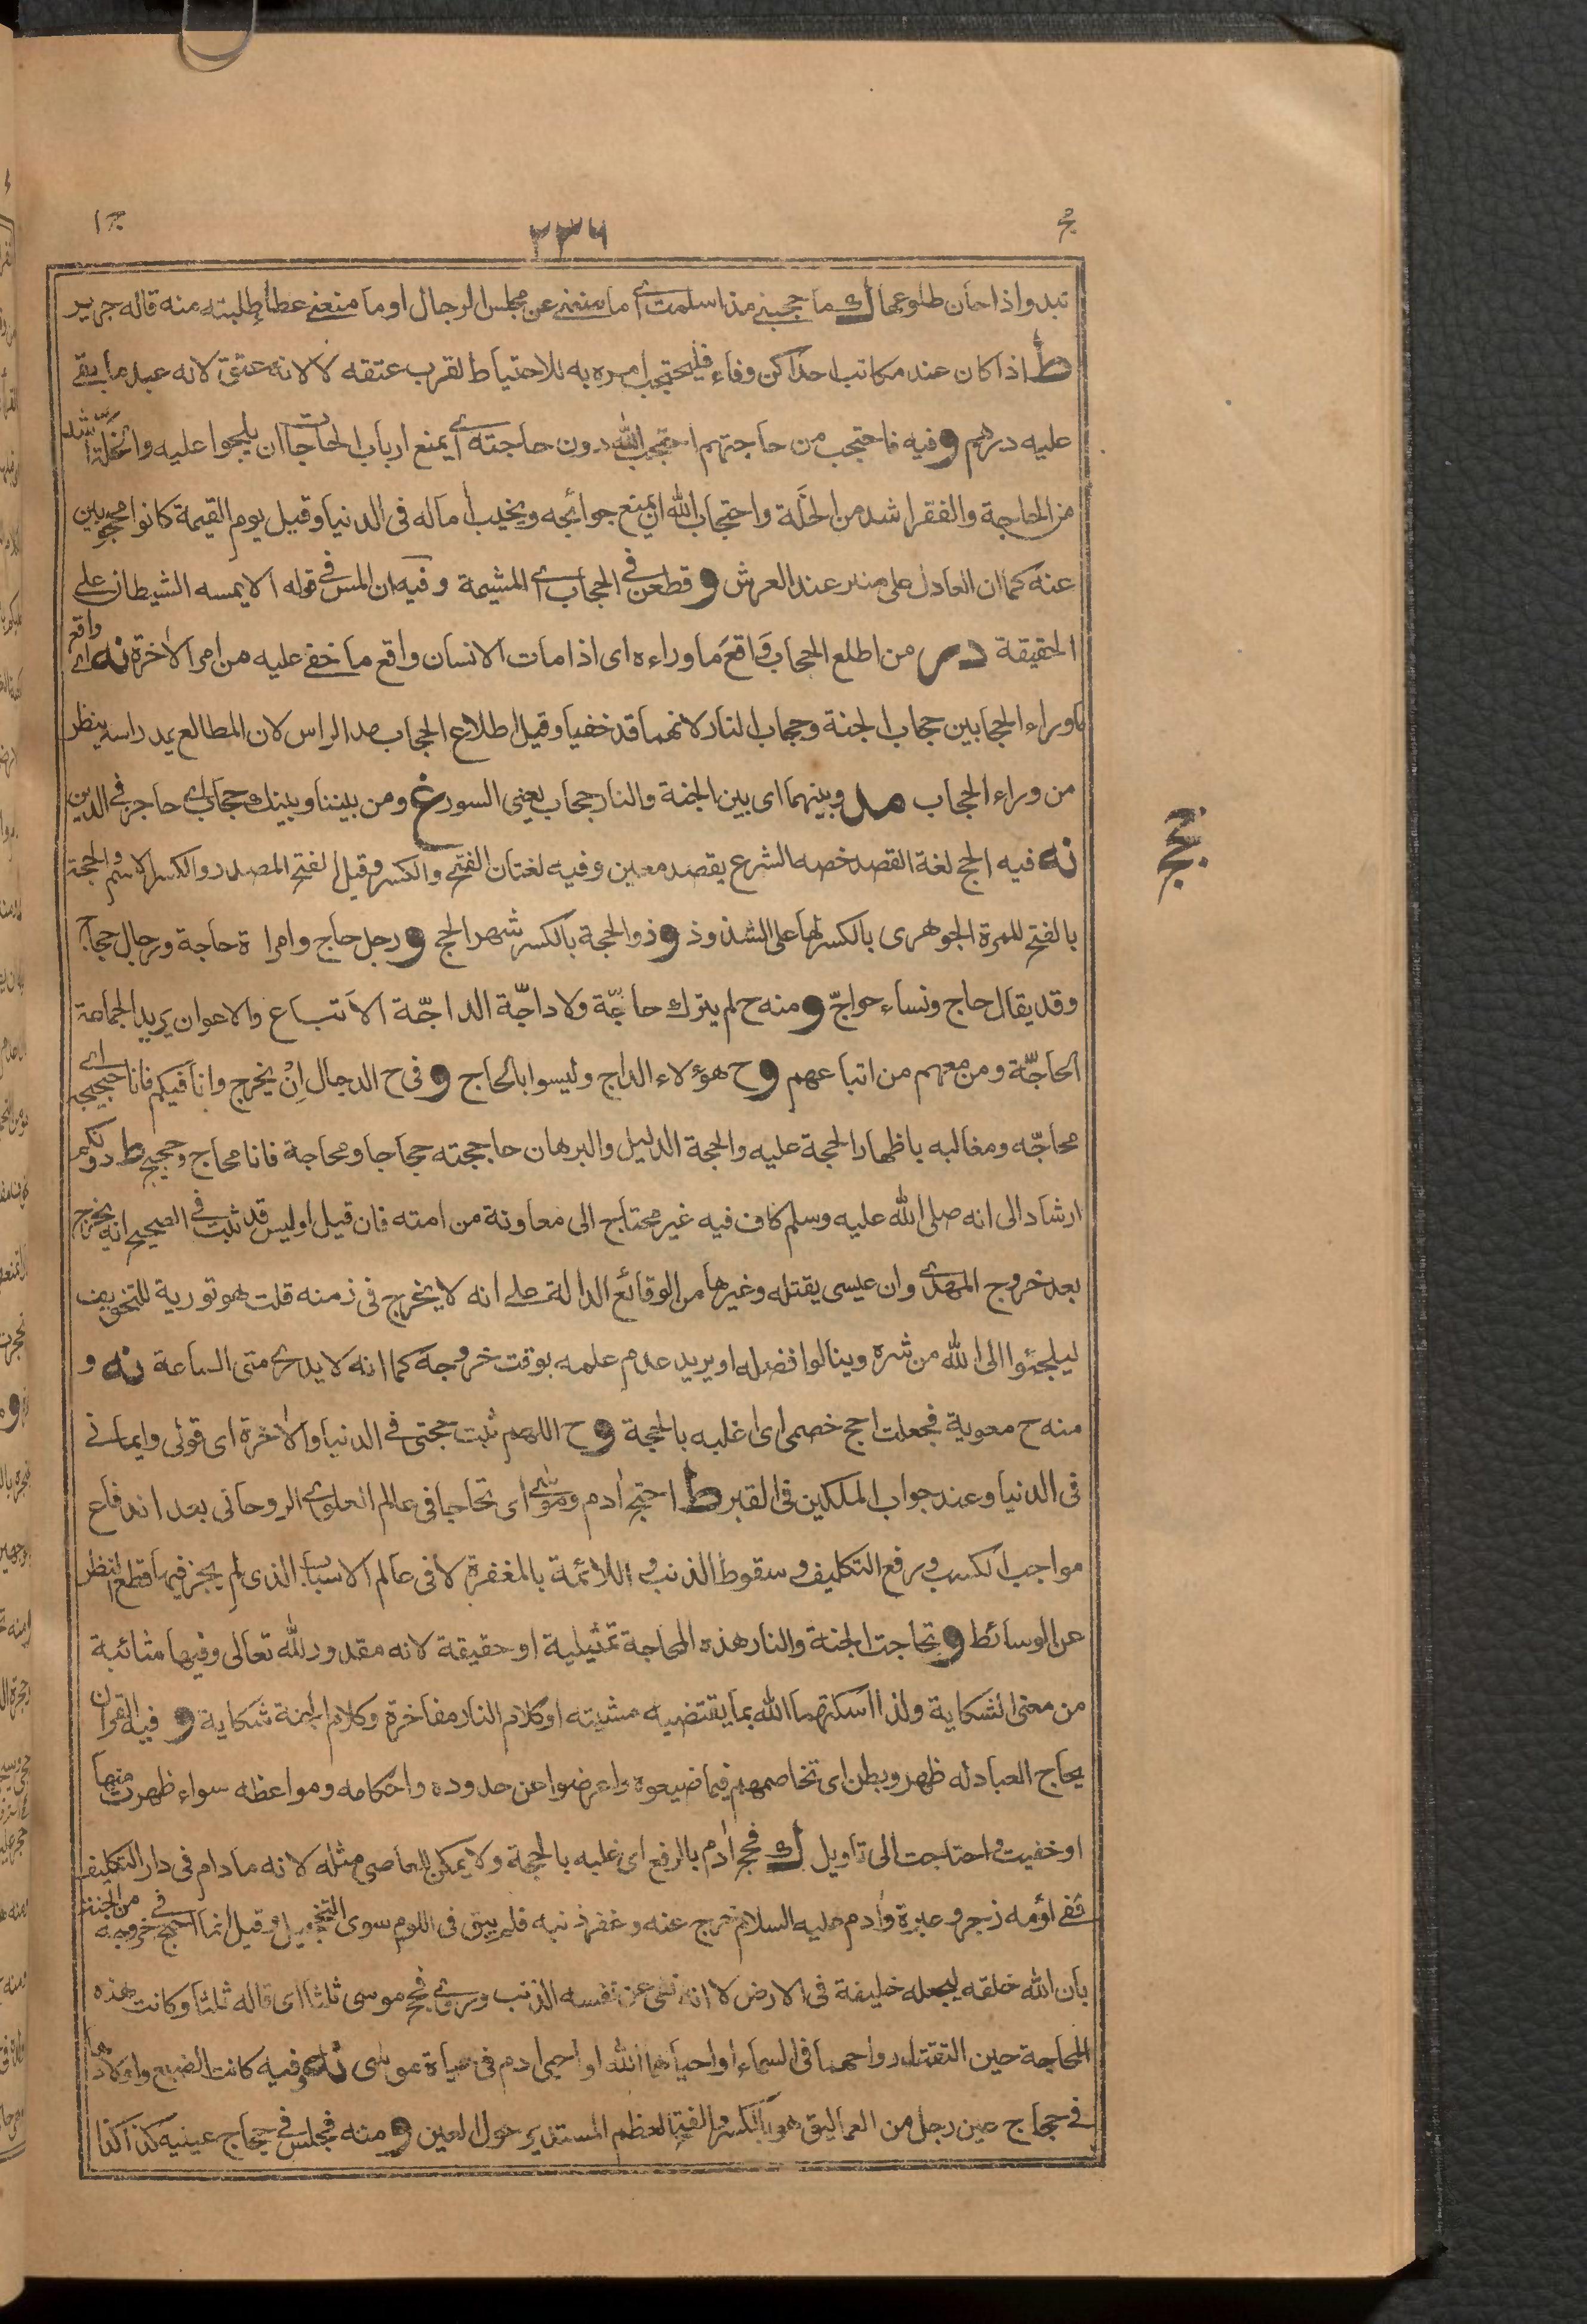 حج
٢٣٦
ج ١
تبدو اذا حان طلوعها ك ما حجبني منذ اسلمت اى ما منعنى عن مجلس الرجال او ما منعنى عطاء طلبته منه قاله جرير
ط اذا كان عند مكاتب احداكن وفاء فليحتجب امره به للاحتياط لقرب عتقه لا لانه عتق لانه عبد ما بقى
عليه درهم و فيه فاحتجب من حاجتهم احتجب الله دون حاجته اى يمنع ارباب الحاجات ان يلجوا عليه والخلة اشد
من الحاجة والفقر اشد من الخلة واحتجاب الله ان يمنع حوائجه ويخيب اماله فى الدنيا وقيل يوم القيمة كانوا محجوبين
عنه كما ان العادل على منبر عند العرش و قطعن فى الحجاب اى المشيمة وفيه ان المس فى قوله الا يمسه الشيطان على
الحقيقة در من اطلع الحجاب واقع ما وراءه اى اذا مات الانسان واقع ما خفى عليه من امر الاخرة نه اى واقع
ما وراء الحجابين حجاب الجنة وحجاب النار لانهما قد خفيا وقيل اطلاع الحجاب مد الراس لان المطالع يمد راسه ينظر
من وراء الحجاب مد وبينهما اى بين الجنة والنار حجاب يعنى السور غ ومن بيننا وبينك حجاب اى حاجز فى الدين
حج
نه فيه الحج لغة القصد خصه الشرع بقصد معين وفيه لغتان الفتح والكسر وقيل الفتح المصدر والكسر الاسم والحجة
بالفتح للمرة الجوهرى بالكسر لها على الشذوذ و ذو الحجة بالكسر شهر الحج و رجل حاج وامراة حاجة ورجال حجاج
وقد يقال حاج ونساء حواجّ و منه ح لم يترك حاجّة ولا داجّة الداجّة الاتباع والاعوان يريد الجماعة
الحاجّة ومن معهم من اتباعهم و ح هؤلاء الداج وليسوا بالحاج و فى ح الدجال اِنْ يخرج وانا فيكم فانا حجيجه اى
محاجّه ومغالبه باظهار الحجة عليه والحجة الدليل والبرهان حاججته حجاجا ومحاجة فانا محاج وحجيج ط دونكم
ارشاد الى انه صلى الله عليه وسلم كاف فيه غير محتاج الى معاونة من امته فان قيل اوليس قد ثبت فى الصحيح انه يخرج
بعد خروج المهدى وان عيسى يقتله وغيرها من الوقائع الدالة على انه لا يخرج فى زمنه قلت هو تورية للتخويف
ليلجئوا الى الله من شره وينالوا فضله او يريد عدم علمه بوقت خروجه كما انه لا يدرى متى الساعة نه و
منه ح معوية فجعلت احج خصمى اى اغلبه بالحجة و ح اللهم ثبت حجتى فى الدنيا والاخرة اى قولى وايمانى
فى الدنيا وعند جواب الملكين فى القبر ط احتج ادم وموسى اى تحاجا فى عالم العلوى الروحانى بعد اندفاع
مواجب الكسب ورفع التكليف وسقوط الذنب و اللائمة بالمغفرة لا فى عالم الاسباب الذى لم يجز فيها قطع النظر
عن الوسائط و تحاجت الجنة والنار هذه المحاجة تمثيلية او حقيقة لانه مقدور لله تعالى وفيها شائبة
من معنى الشكاية ولذا اسكتهما الله بما يقتضيه مشيته او كلام النار مفاخرة وكلام الجنة شكاية و فيه القران
يحاج العباد له ظهر وبطن اى تخاصمهم فيما ضيعوه واعرضوا عن حدوده واحكامه ومواعظه سواء ظهرت منها
او خفيت و احتاجت الى تاويل ك فحج ادم بالرفع اى غلبه بالحجة ولا يمكن للعاصى مثله لانه مادام فى دار التكليف
ففى لؤمه زجر و عبرة وادم عليه السلام خرج عنه وغفر ذنبه فلم يبق فى اللوم سوى التخجيل وقيل انما احتج فى خروجه من الجنة
بان الله خلقه ليجعله خليفة فى الارض لا انه نفى عن نفسه الذنب وروى فحج موسى ثلثا اى قاله ثلثا وكانت هذه
المحاجة حين التقت ارواحهما فى السماء او احياهما الله او احيى ادم فى حياة موسى نه وفيه كانت الضبع واولادها
فى حجاج عين رجل من العماليق هو بالكسر والفتح العظم المستدير حول العين و منه فجلس فى حجاج عينيه كذا كذا